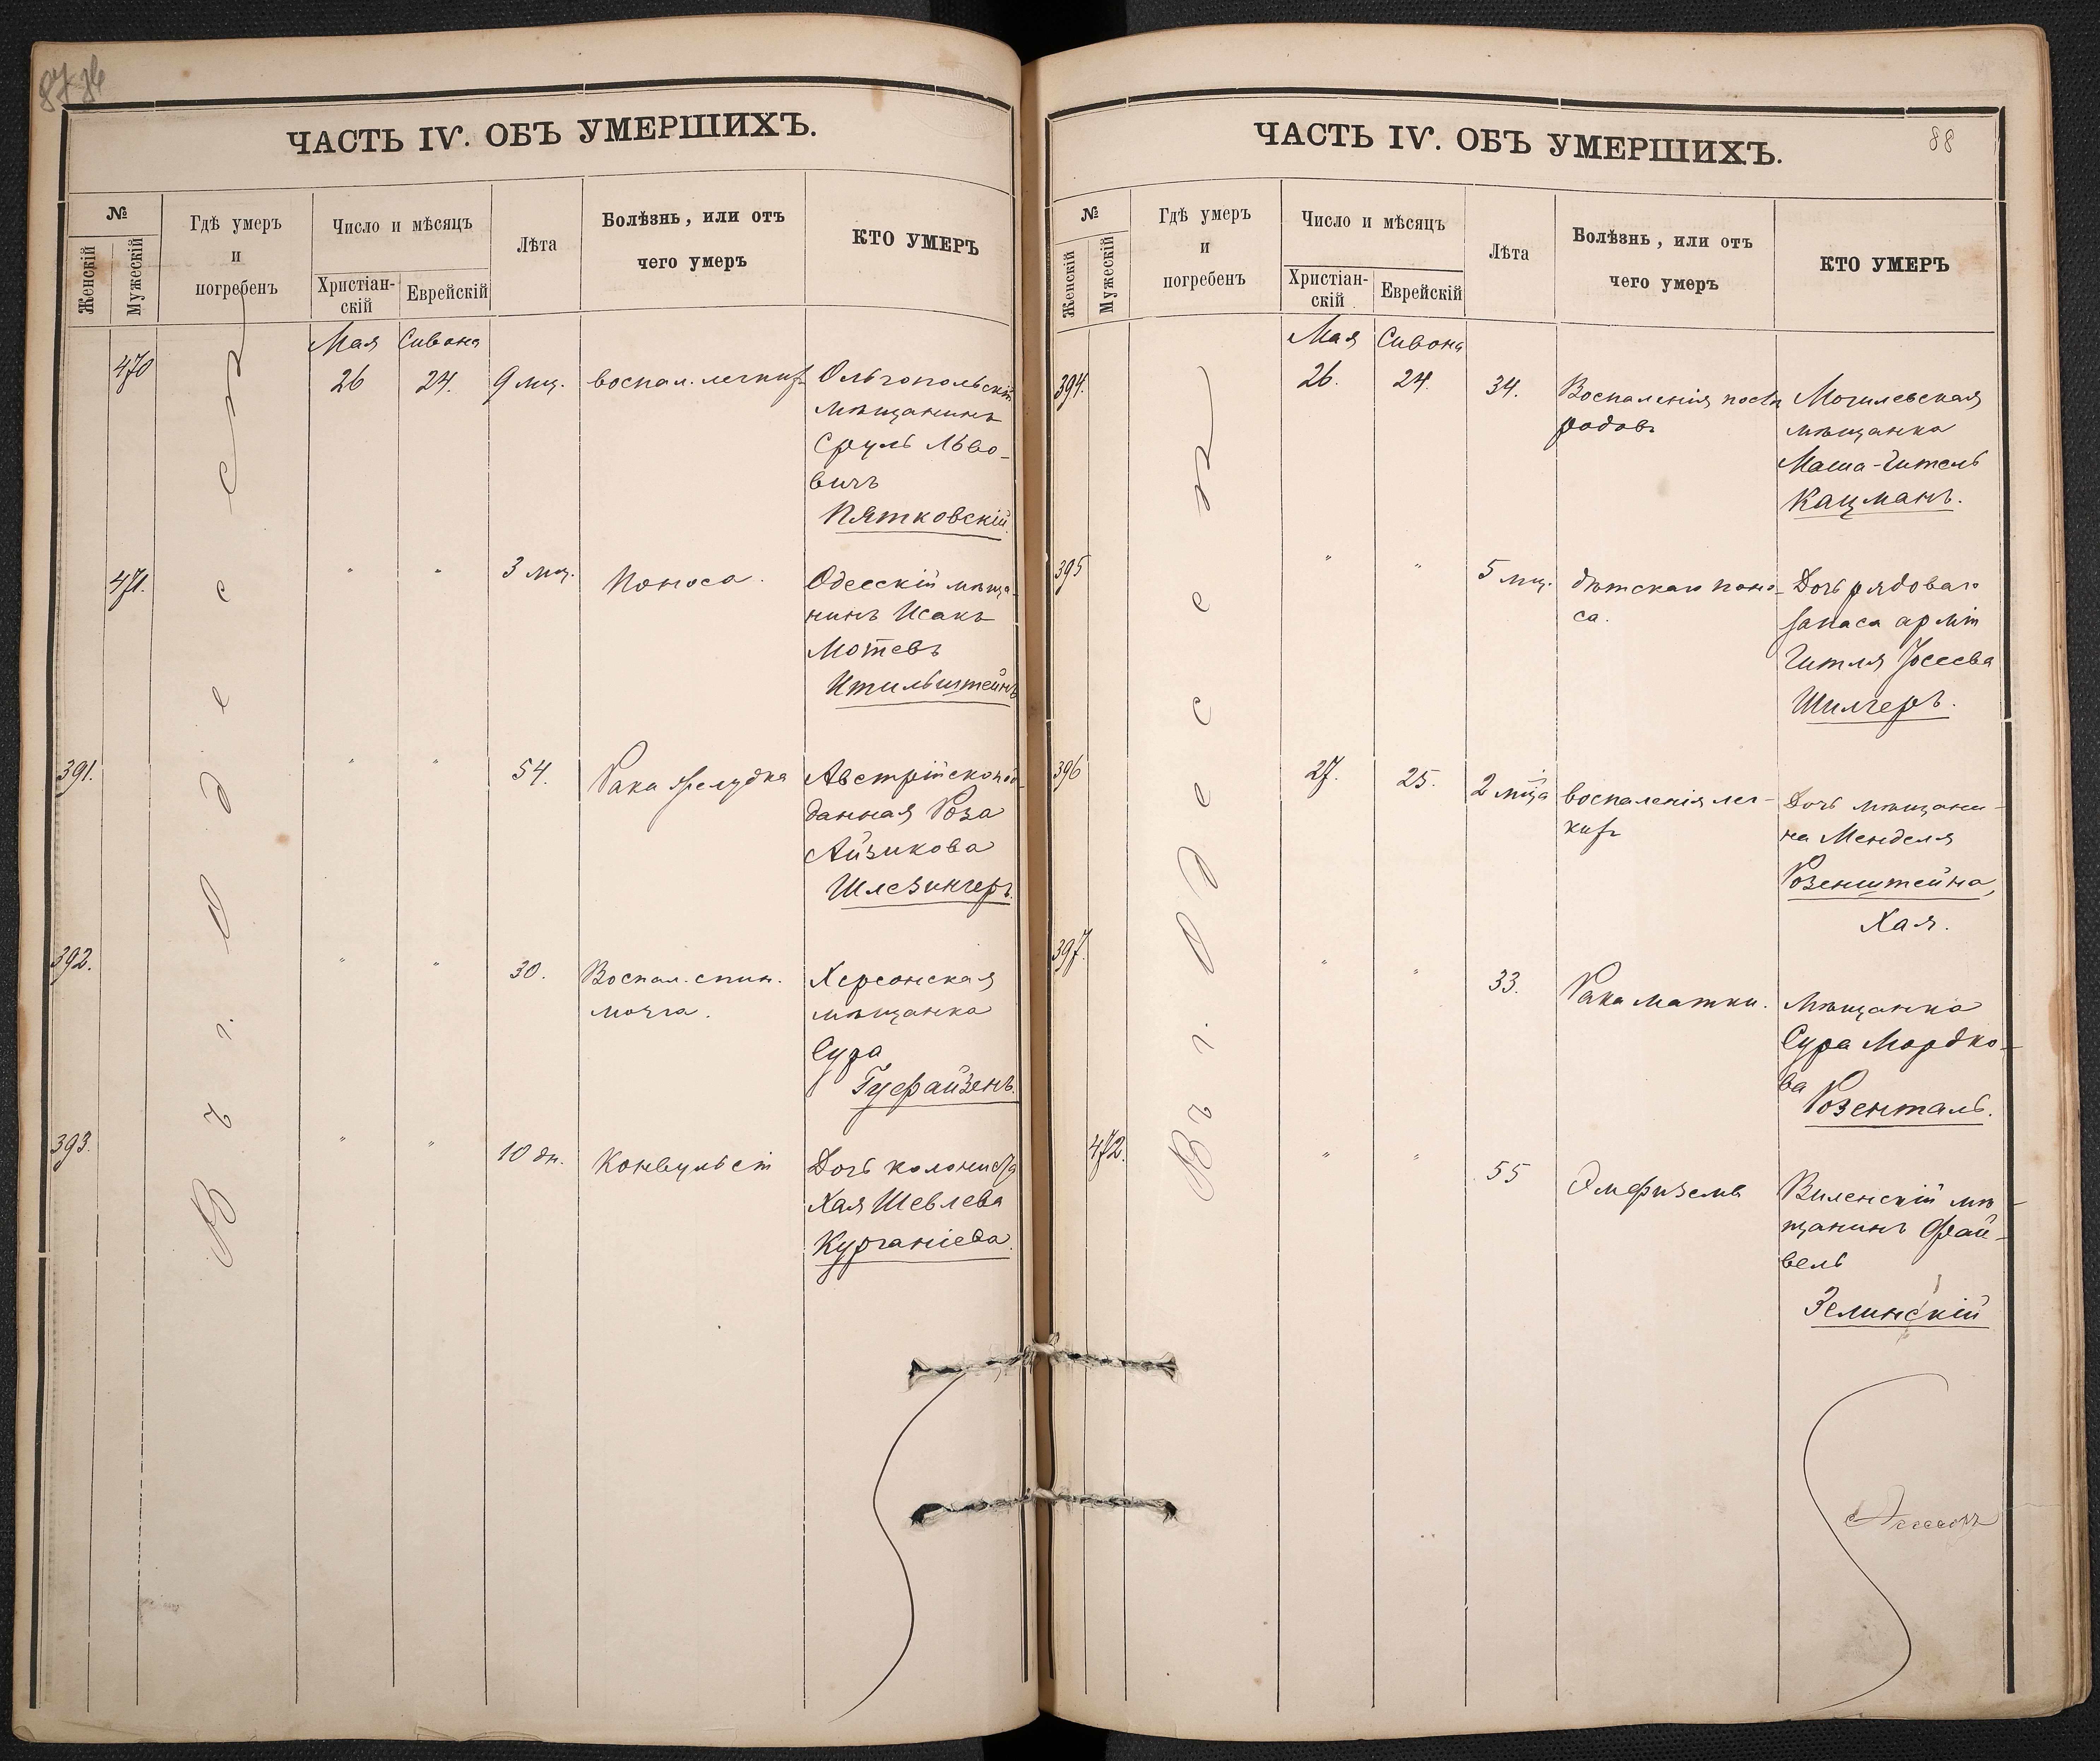 ЧАСТЬ IV. ОБЪ УМЕРШИХЪ.
№
Женскій
Мужескій
Гдѣ умеръ
и
погребенъ
Число и мѣсяцъ
Христіан-
скій
Еврейскій
Лѣта
Болѣзнь, или отъ
чего умеръ
КТО УМЕРЪ
Въ г. Одессѣ
Мая Сивона
470 26 24. 9 мц. воспал. легкихъ Ольгопольскій
мѣщанинъ
Сруль Льво-
вичъ
Пятковскій.
471. " " 3 мц. Поноса. Одесскій мѣща-
нинъ Исакъ
Мотевъ
Итильштейнъ
391. " " 54. Рака желудка Австрійскопод-
данная Роза
Айзикова
Шлезингеръ.
392. " " 30. Воспал. спин. Херсонская
мозга. мѣщанка
Сура
Гусфайзенъ.
393. " " 10 дн. Конвульсій Дочь колониста
Хая Шевлева
Курганіева.
ЧАСТЬ IV. ОБЪ УМЕРШИХЪ.
88
№
Женскій
Мужескій
Гдѣ умеръ
и
погребенъ
Число и мѣсяцъ
Христіан-
скій
Еврейскій
Лѣта
Болѣзнь, или отъ
чего умеръ
КТО УМЕРЪ
Въ г. Одессѣ
Мая Сивона
394. 26. 24. 34. Воспаленія послѣ Могилевская
родовъ мѣщанка
Маша-Гитель
Кацманъ.
395 " " 5 мц. дѣтскаго поно- Дочь рядоваго
са. запаса арміи
Гитля Іосева
Шилгеръ.
396 27. 25. 2 мѣца воспаленія лег- Дочь мѣщани-
кихъ на Менделя
Розенштейна,
Хая.
397. " " 33. Рака матки. Мѣщанка
Сура Мордко-
ва
Розенталь.
472. " " 55 Эмфиземы Виленскій мѣ-
щанинъ Фай-
вель
Зелинскій